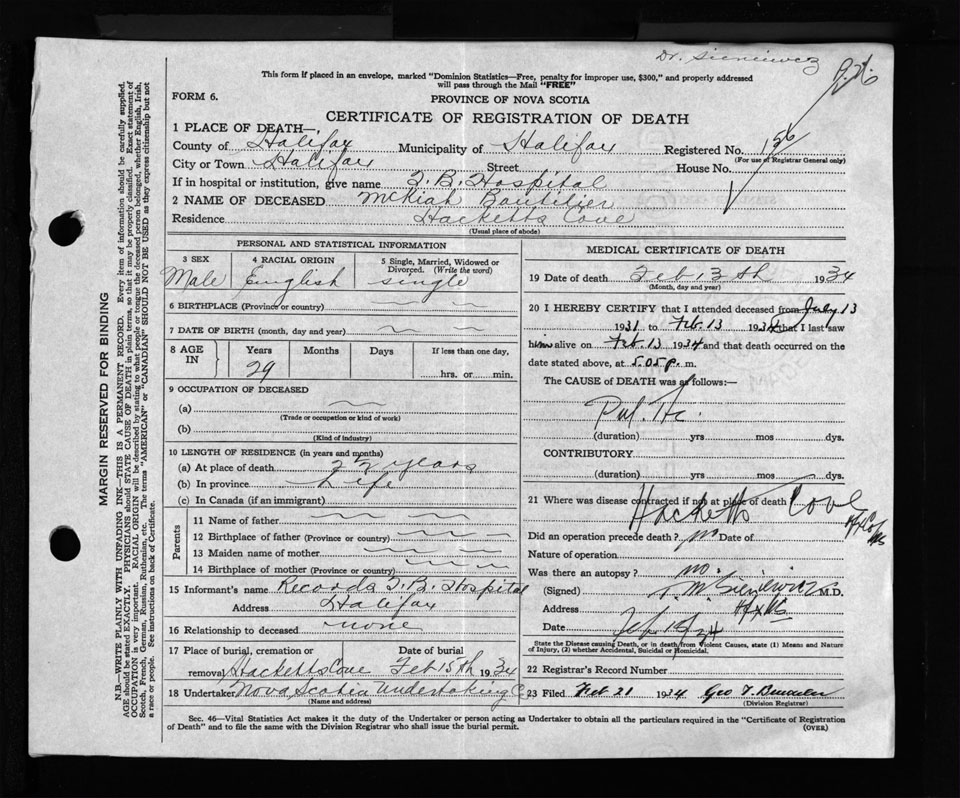 Dr. Sieniewicz
This form if placed in an envelope, marked "Dominion Statistics—Free, penalty for improper use, $300," and properly addressed
will pass through the Mail "FREE"
FORM 6.
PROVINCE OF NOVA SCOTIA
CERTIFICATE OF REGISTRATION OF DEATH
1 PLACE OF DEATH—
County of Halifax Municipality of Halifax Registered No. 156
(For use of Registrar General only)
City or Town Halifax Street House No.
If in hospital or institution, give name T. B. Hospital
2 NAME OF DECEASED McKiah Boutilier
Residence Hacketts Cove
(Usual place of abode)
PERSONAL AND STATISTICAL INFORMATION
3 SEX
Male
4 RACIAL ORIGIN
English
5 Single, Married, Widowed or
Divorced. (Write the word)
single
6 BIRTHPLACE (Province or country)
7 DATE OF BIRTH (month, day and year)
8 AGE IN
Years Months Days If less than one day,
29
hrs. or min.
9 OCCUPATION OF DECEASED
(a)
(Trade or occupation or kind of work)
(b)
(Kind of industry)
10 LENGTH OF RESIDENCE (in years and months)
(a) At place of death 2½ years
(b) In province Life
(c) In Canada (if an immigrant)
Parents
11 Name of father
12 Birthplace of father (Province or country)
13 Maiden name of mother
14 Birthplace of mother (Province or country)
15 Informant's name Records T. B. Hospital
Address Halifax
16 Relationship to deceased none
17 Place of burial, cremation or Date of burial
removal Hacketts Cove Feb 15th 1934
18 Undertaker Nova Scotia Undertaking Co
(Name and address)
MEDICAL CERTIFICATE OF DEATH
19 Date of death Feb 13th 1934
(Month, day and year)
20 I HEREBY CERTIFY that I attended deceased from July 13
1931 to Feb. 13 1934 that I last saw
him alive on Feb. 13 1934 and that death occurred on the
date stated above, at 5.05 p. m.
The CAUSE of DEATH was as follows:—
Pul. Tbc.
(duration) yrs mos dys.
CONTRIBUTORY
(duration) yrs mos dys.
21 Where was disease contracted if not at place of death
Hacketts Cove
Hfx Co. NS
Did an operation precede death? no Date of
Nature of operation
Was there an autopsy? no.
(Signed) T. M. Sieniewicz M.D.
Address Hfx NS
Date Feb 15/34
State the Disease causing Death, or in death from Violent Causes, state (1) Means and
Nature of Injury, (2) whether Accidental, Suicidal or Homicidal.
22 Registrar's Record Number
23 Filed Feb 21 1934 Geo T.
(Division Registrar)
Sec. 46—Vital Statistics Act makes it the duty of the Undertaker or person acting as Undertaker to obtain all the particulars required in the "Certificate of Registration
of Death" and to file the same with the Division Registrar who shall issue the burial permit.
(OVER)
MARGIN RESERVED FOR BINDING
N.B.—WRITE PLAINLY WITH UNFADING INK—THIS IS A PERMANENT RECORD. Every item of information should be carefully supplied.
AGE should be stated EXACTLY. PHYSICIANS should STATE CAUSE OF DEATH in plain terms, so that it may be properly classified. Exact statement of
OCCUPATION is very important. RACIAL ORIGIN will be described by stating to what people or tongue the deceased person belonged, whether English, Irish,
Scotch, French, German, Russian, Ruthenian, etc. The terms "AMERICAN" or "CANADIAN" SHOULD NOT BE USED as they express citizenship but not
a race or people. See instructions on back of Certificate.